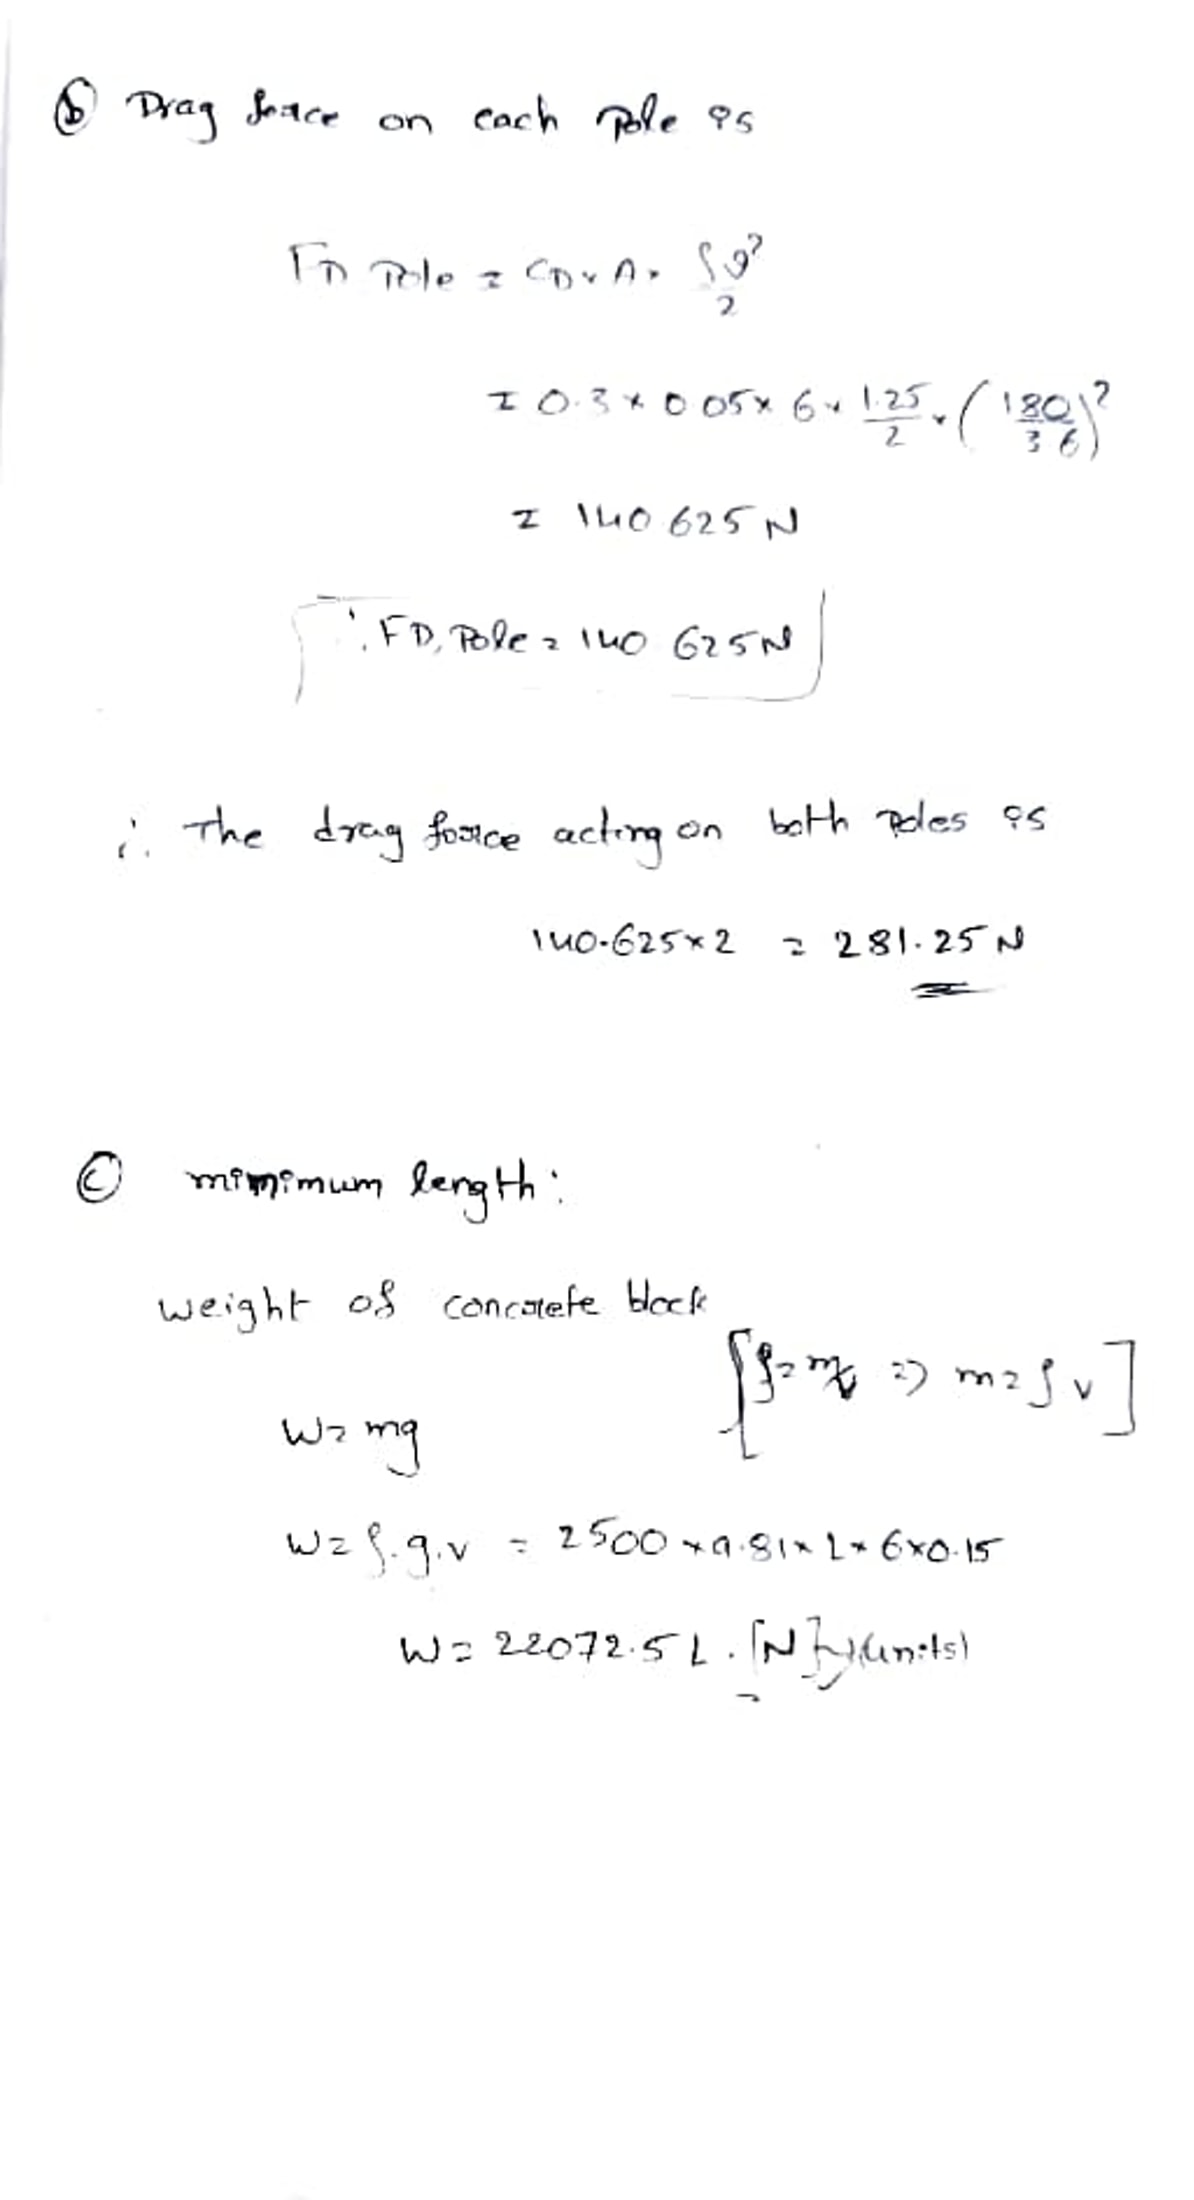 (b) Drag force on each Pole is
FD Pole = CD × A × ρv²/2
= 0.3 × 0.05 × 6 × 1.25/2 × (180/3.6)²
= 140.625 N
∴ FD, Pole = 140.625 N
∴ The drag force acting on both Poles is
140.625 × 2 = 281.25 N
(c) mimimum length:
weight of concrete block
[ρ = m/v => m = ρv]
W = mg
W = ρ.g.v = 2500 × 9.81 × L × 6 × 0.15
W = 22072.5 L. [N] (units)